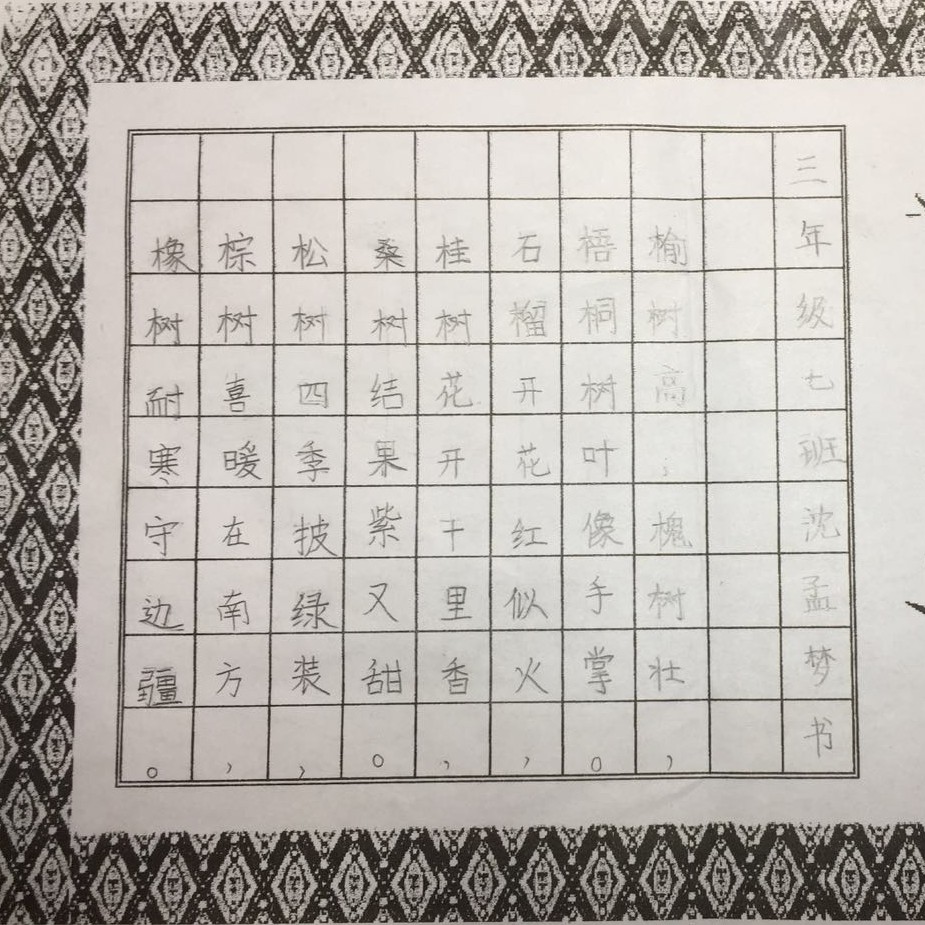 三年级七班沈孟梦书
榆树高;槐树壮,
梧桐树叶像手掌。
石榴开花红似火,
桂树花开千里香,
桑树结果紫又甜。
松树四季披绿装,
棕树喜暖在南方,
橡树耐寒守边疆。